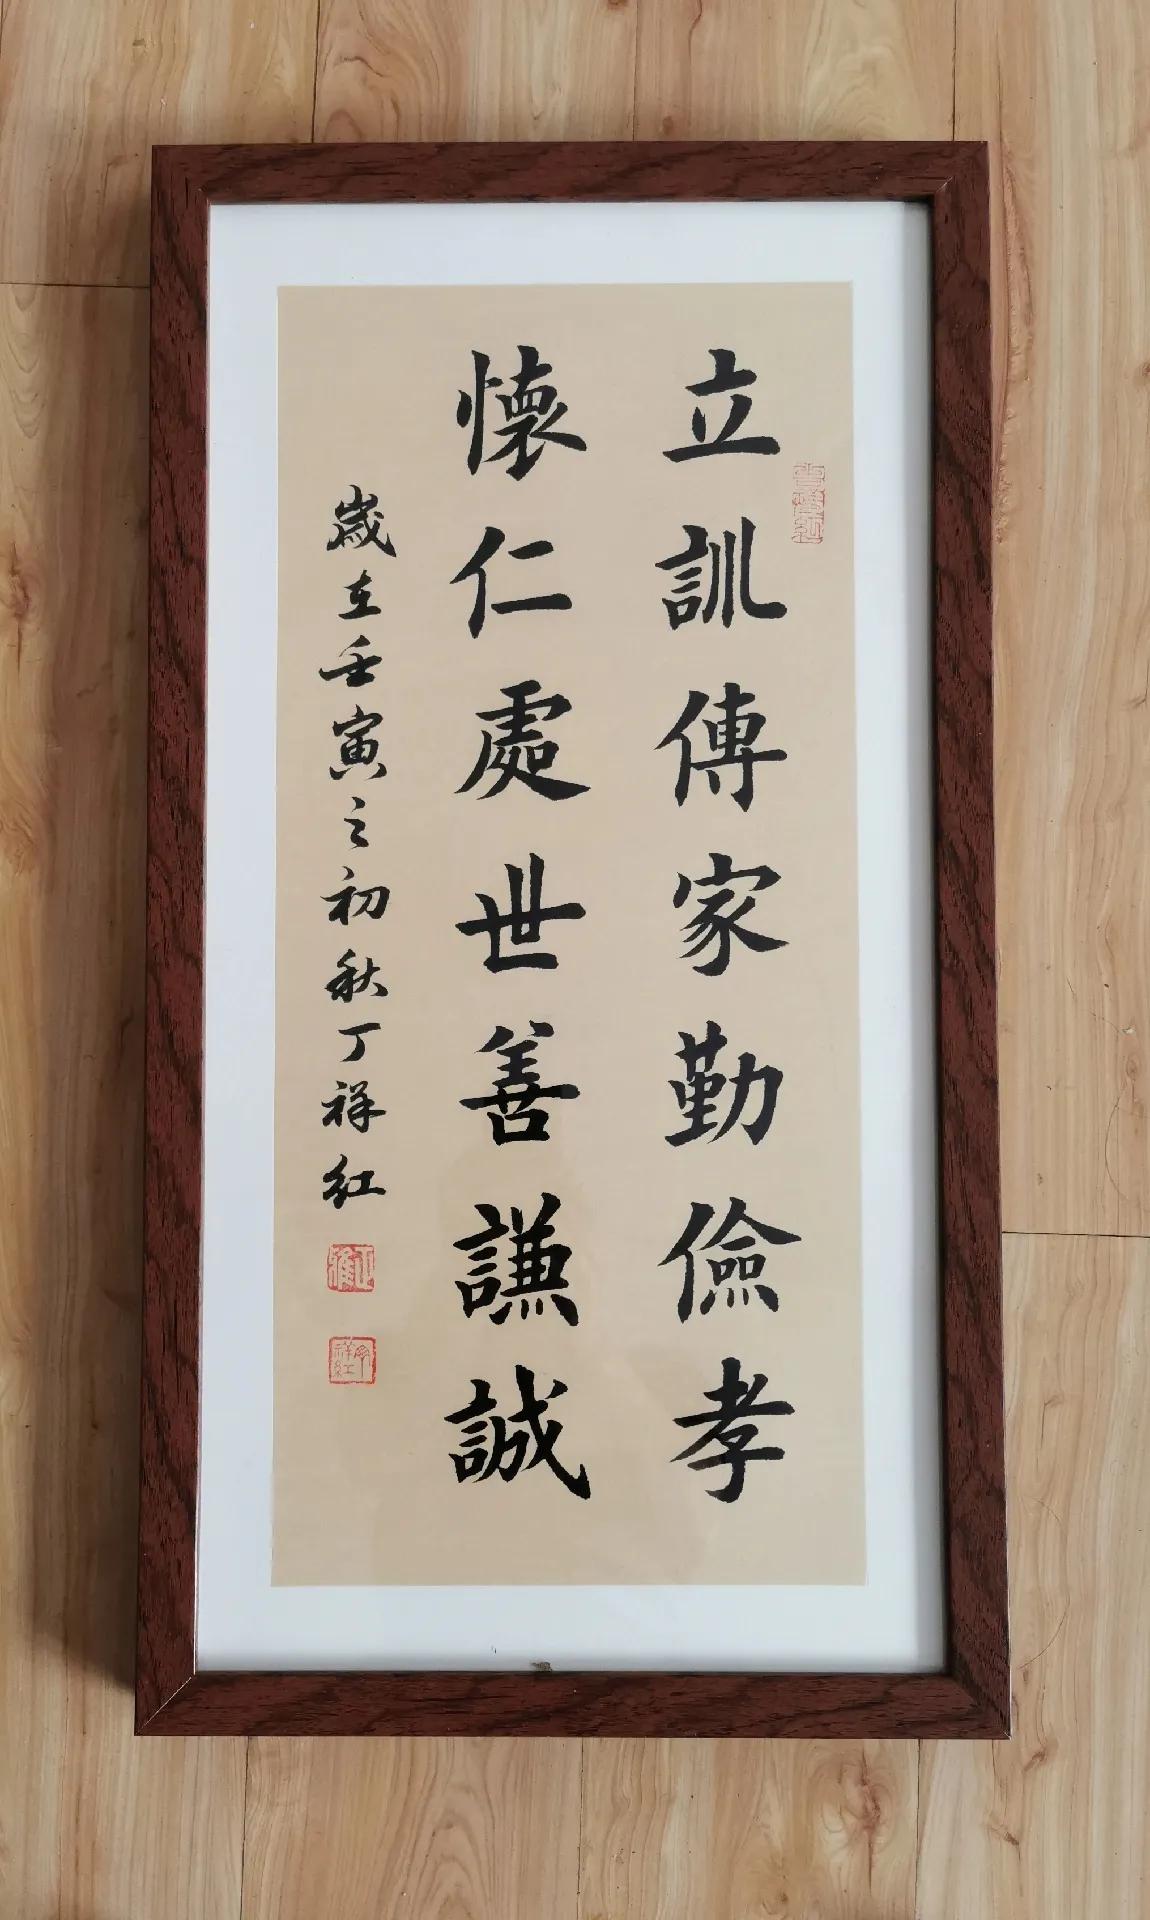 立訓傳家勤儉孝
懷仁處世善謙誠
歲在壬寅之初秋丁祥紅